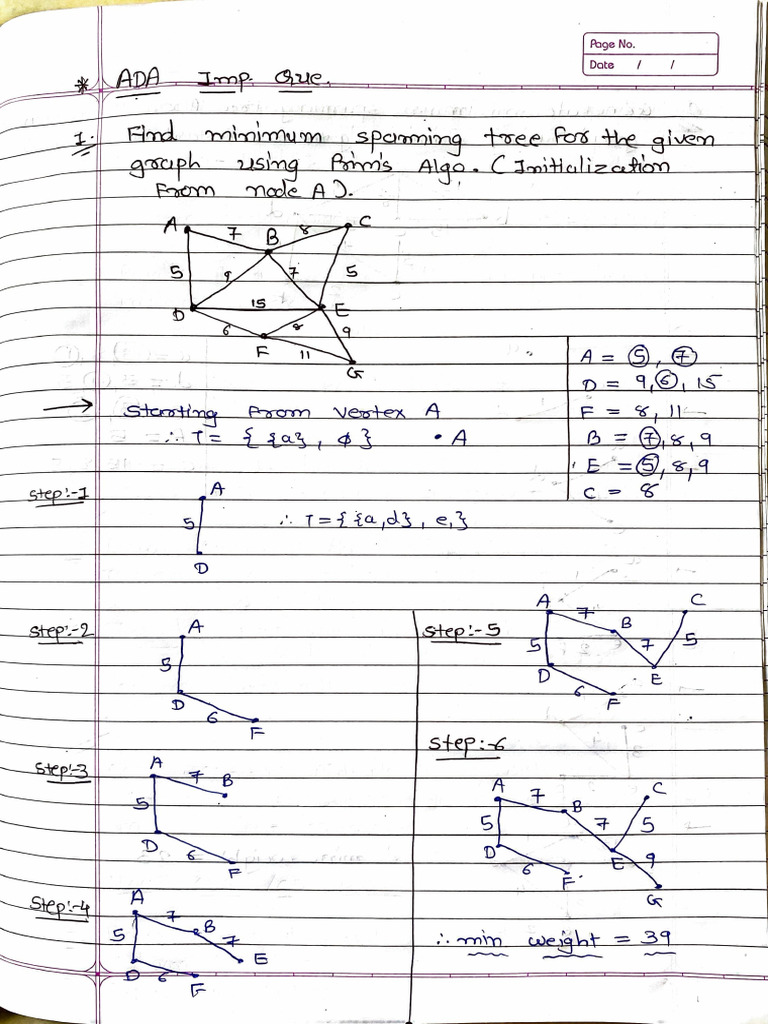 Page No.
Date / /
* ADA Imp. Que.
1. Find minimum spanning tree for the given
graph using Prim's Algo. (Initialization
From node A).
A 7 B 8 C
5 9 7 5
D 15 E
6 F 8 9
11 G
→ Starting from vertex A
∴ T = { {a}, ϕ} • A
A = 5, 7
D = 9, 6, 15
F = 8, 11
B = 7, 8, 9
E = 5, 8, 9
C = 8
Step:-1
A
5
D
∴ T = { {a,d}, e,}
Step:-2
A
5
D
6
F
Step:-3
A
7
B
5
D
6
F
Step:-4
A
7
B
5
7
E
D
6
F
Step:-5
A
7
B
C
5
7
5
D
E
6
F
Step:-6
A
7
B
C
5
7
5
D
E
6
9
F
G
∴ min weight = 39